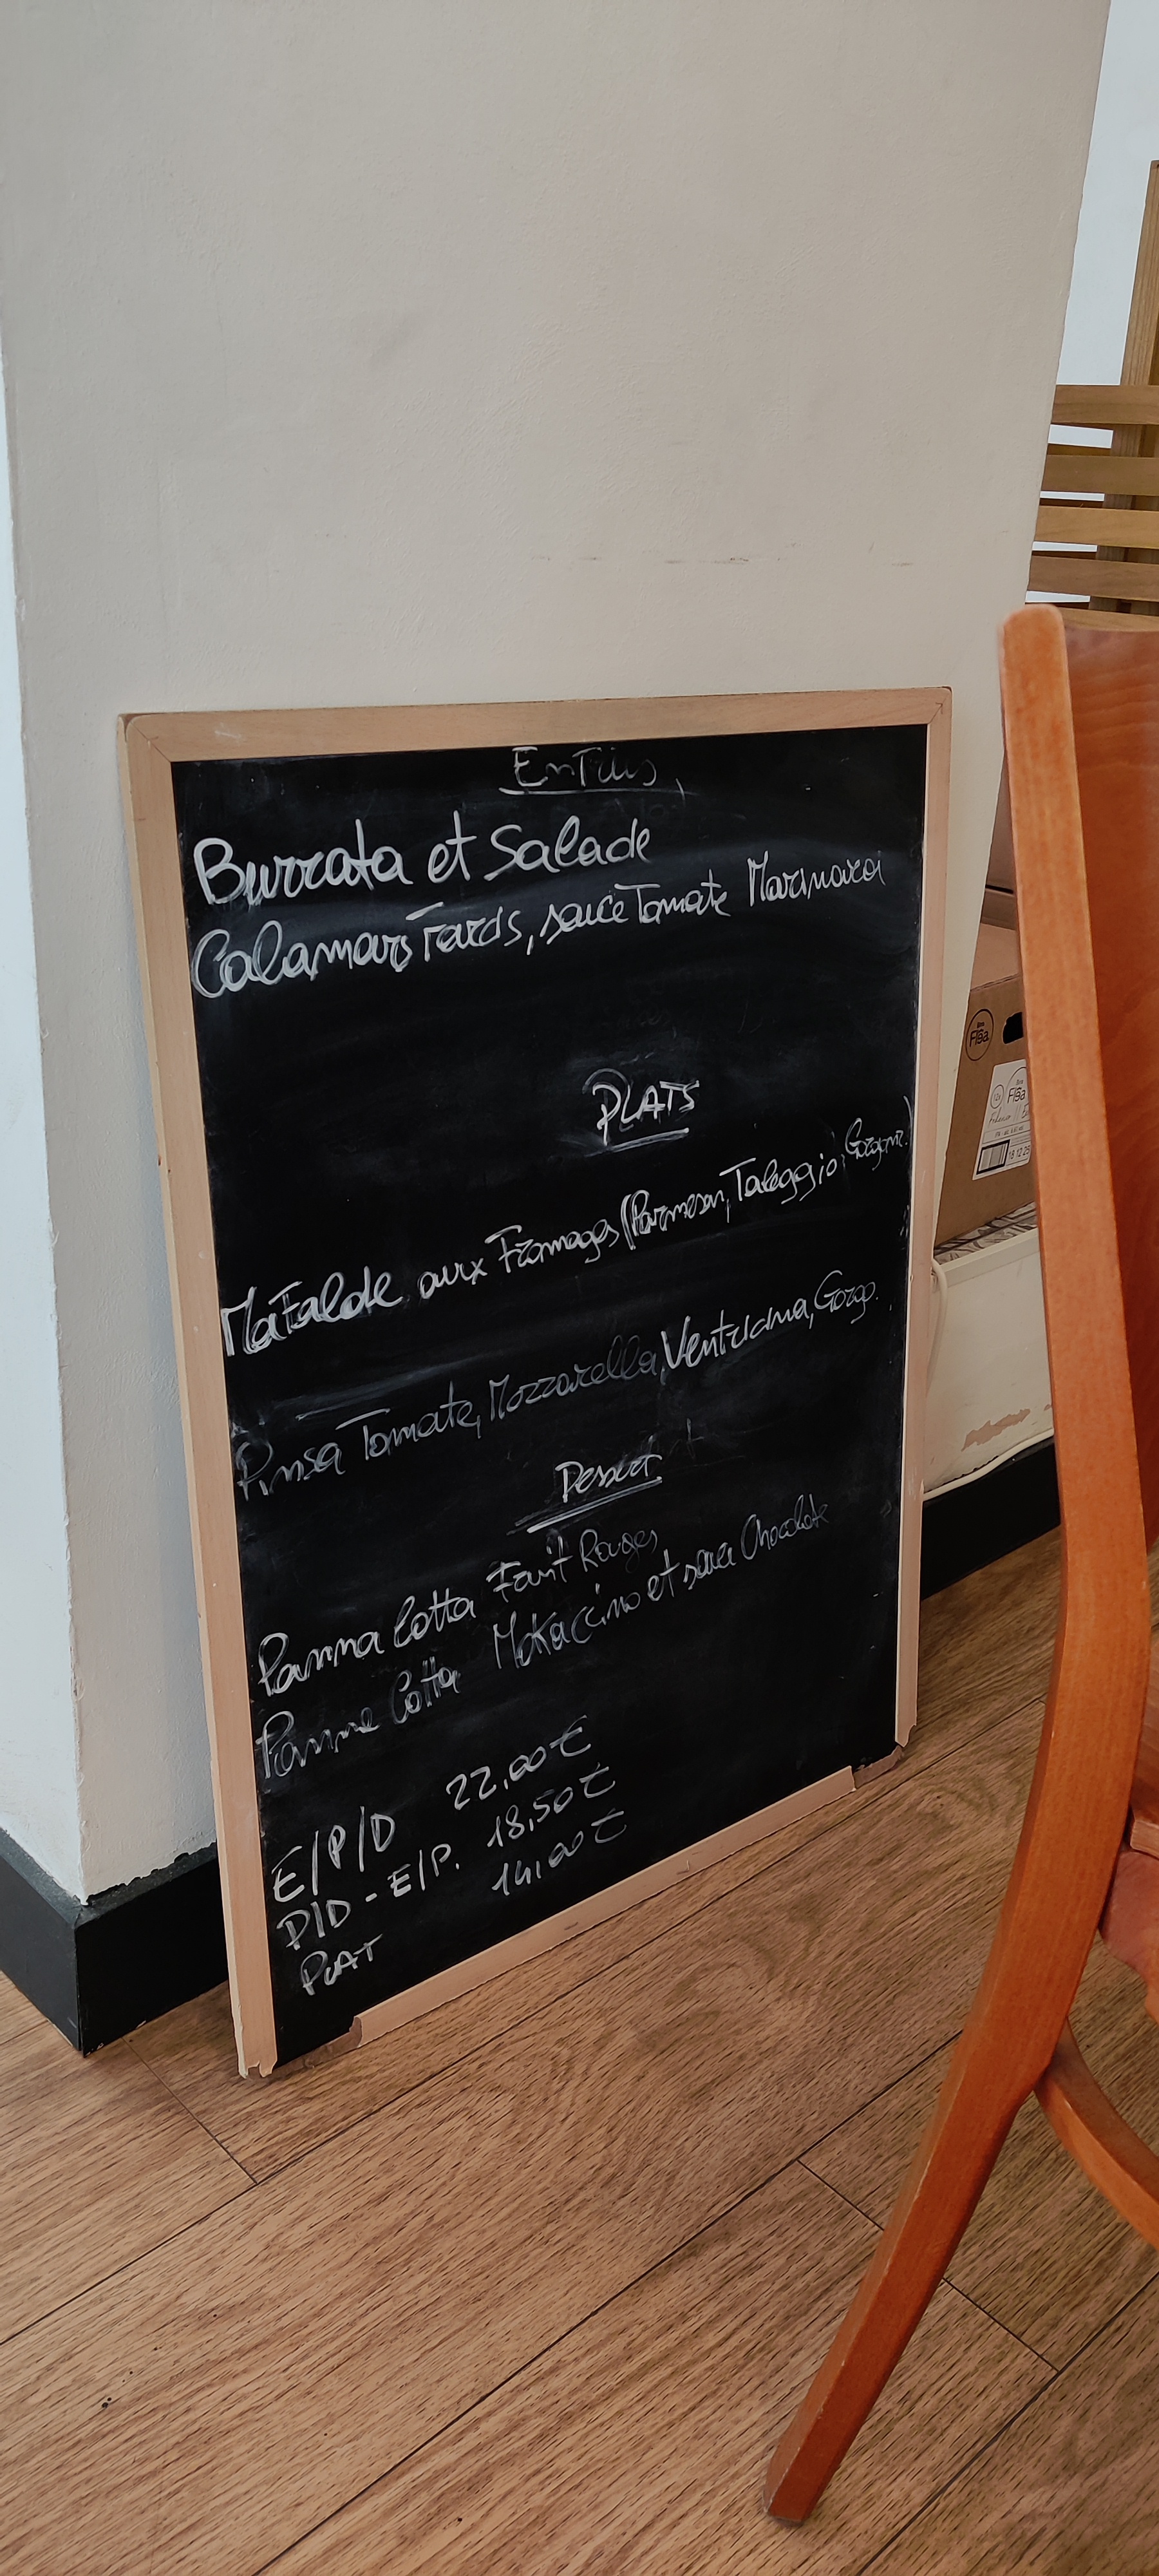 Entrées
Burrata et Salade
Calamars Farcis, sauce Tomate Marinara
PLATS
Mafalde aux Fromages (Parmesan, Taleggio, Gorgonz.)
Pinsa Tomate, Mozzarella, Ventricina, Gorgo.
Dessert
Panna Cotta Fruit Rouges
Panna Cotta Mokaccino et sauce Chocolate
E/P/D 22,00 €
P/D - E/P. 18,50 €
PLAT 14,00 €
Flea
12x
Flea
18 12 25